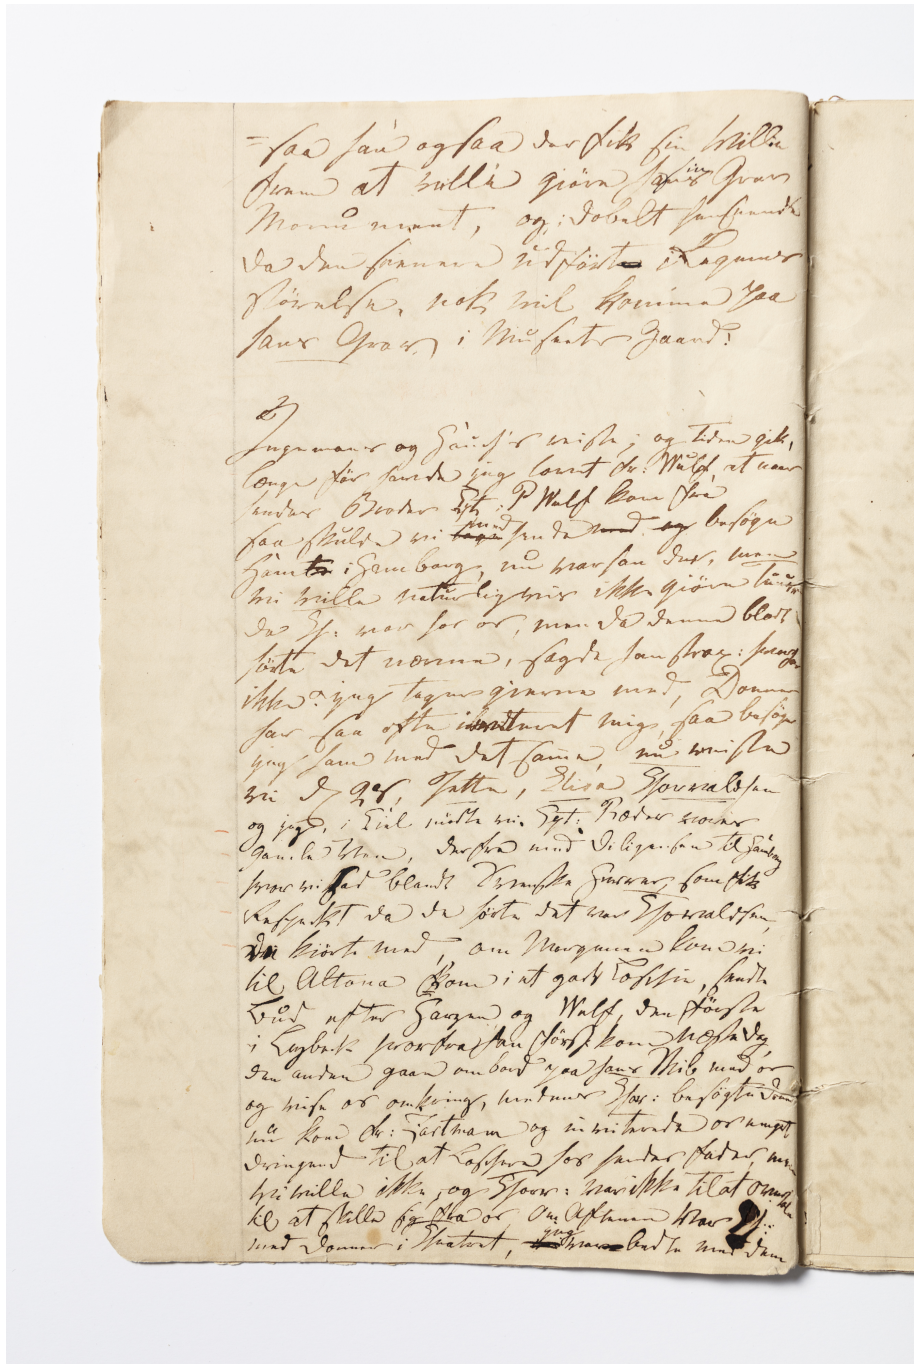 = saa han ogsaa der fik sin Villie
frem at ville giöre sin Grav
Monument, og; dobelt
da den sienere udfört i Legems
störelse, nok vil komme paa
hans Grav, i Museets Gaard!
2)
Ingemanns og Hauch's reiste; og tiden gik,
længe för havde jeg lovet Fr: Wulff, at naar
hendes Broder Cpt: P Wulff kom fra
saa skulde vi med hende besöge
ham i Hamborg, nu var han der, men
vi ville naturligviis ikke giöre
da Th: var hos os, men da denne blodt
hörte det nævne, sagde han strax:
ikke? jeg tager gierne med, Donner
har saa ofte inviteret mig, saa besöger
jeg ham med det samme, nu reiste
vi d, Jette, Elisa Thorvaldsen
og jeg, i Kiel mödte vi Cpt: Ræder vores
gamle Ven, derfra med Diligensen til Hamborg
hvor vi sad blandt Svenske Herrer, som fik
Respeckt da de hörte det var Thorvaldsen,
de kiörte med, om Morgenen kom vi
til Altona kom i et godt Loschie, sendte
Bud efter Harzen og Wulff, den förste
i Lybeck hvorfra han först kom næste dag,
den anden gaae ombord paa hans Skib med os
og viise os omkring, medens Thor: besögte Donner
nu kom Fr: Hartmann og inviterede os meget
dringend til at Loschere hos hendes Fader, men
vi ville ikke, og Thorv: var ikke til at overtale
til at skille sig fra os om Aftenen var Th:
med Donner i Theatret, jeg bedte med dem